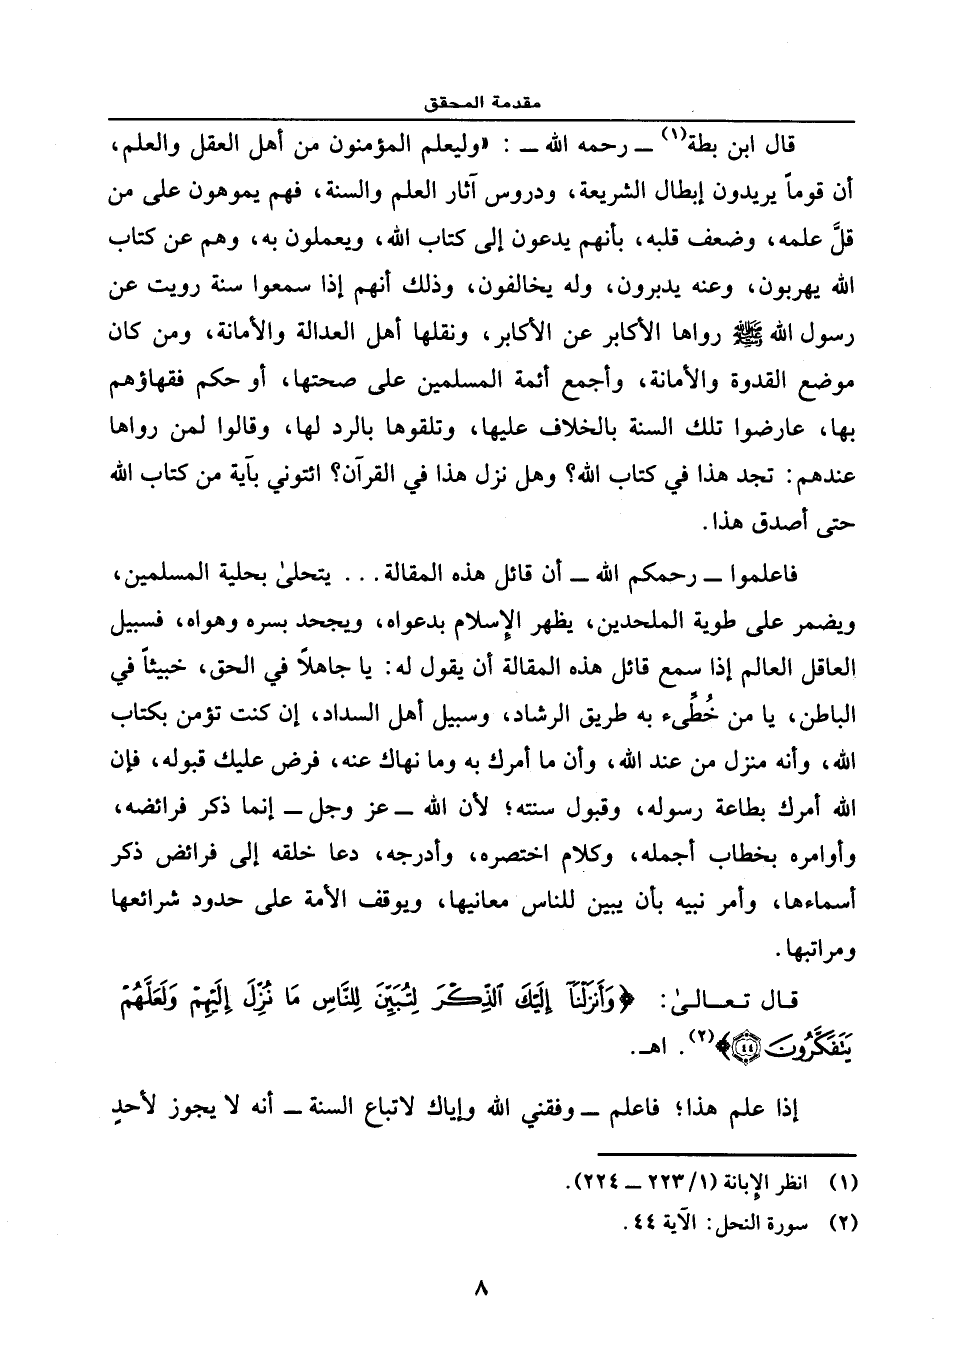 مقدمة المحقق
قال ابن بطة(١) ــ رحمه الله ــ : «وليعلم المؤمنون من أهل العقل والعلم،
أن قوماً يريدون إبطال الشريعة، ودروس آثار العلم والسنة، فهم يموهون على من
قلَّ علمه، وضعف قلبه، بأنهم يدعون إلى كتاب الله، ويعملون به، وهم عن كتاب
الله يهربون، وعنه يدبرون، وله يخالفون، وذلك أنهم إذا سمعوا سنة رويت عن
رسول الله ﷺ رواها الأكابر عن الأكابر، ونقلها أهل العدالة والأمانة، ومن كان
موضع القدوة والأمانة، وأجمع أئمة المسلمين على صحتها، أو حكم فقهاؤهم
بها، عارضوا تلك السنة بالخلاف عليها، وتلقوها بالرد لها، وقالوا لمن رواها
عندهم: تجد هذا في كتاب الله؟ وهل نزل هذا في القرآن؟ ائتوني بآية من كتاب الله
حتى أصدق هذا.
فاعلموا ــ رحمكم الله ــ أن قائل هذه المقالة... يتحلىٰ بحلية المسلمين،
ويضمر على طوية الملحدين، يظهر الإسلام بدعواه، ويجحد بسره وهواه، فسبيل
العاقل العالم إذا سمع قائل هذه المقالة أن يقول له: يا جاهلاً في الحق، خبيثاً في
الباطن، يا من خُطِّىء به طريق الرشاد، وسبيل أهل السداد، إن كنت تؤمن بكتاب
الله، وأنه منزل من عند الله، وأن ما أمرك به وما نهاك عنه، فرض عليك قبوله، فإن
الله أمرك بطاعة رسوله، وقبول سنته؛ لأن الله ــ عز وجل ــ إنما ذكر فرائضه،
وأوامره بخطاب أجمله، وكلام اختصره، وأدرجه، دعا خلقه إلى فرائض ذكر
أسماءها، وأمر نبيه بأن يبين للناس معانيها، ويوقف الأمة على حدود شرائعها
ومراتبها.
قال تعالىٰ: ﴿وَأَنزَلْنَآ إِلَيْكَ ٱلذِّكْرَ لِتُبَيِّنَ لِلنَّاسِ مَا نُزِّلَ إِلَيْهِمْ وَلَعَلَّهُمْ
يَتَفَكَّرُونَ ٤٤﴾(٢). اهـ.
إذا علم هذا؛ فاعلم ــ وفقني الله وإياك لاتباع السنة ــ أنه لا يجوز لأحدٍ
(١) انظر الإبانة (١/٢٢٣ ــ ٢٢٤).
(٢) سورة النحل: الآية ٤٤.
٨